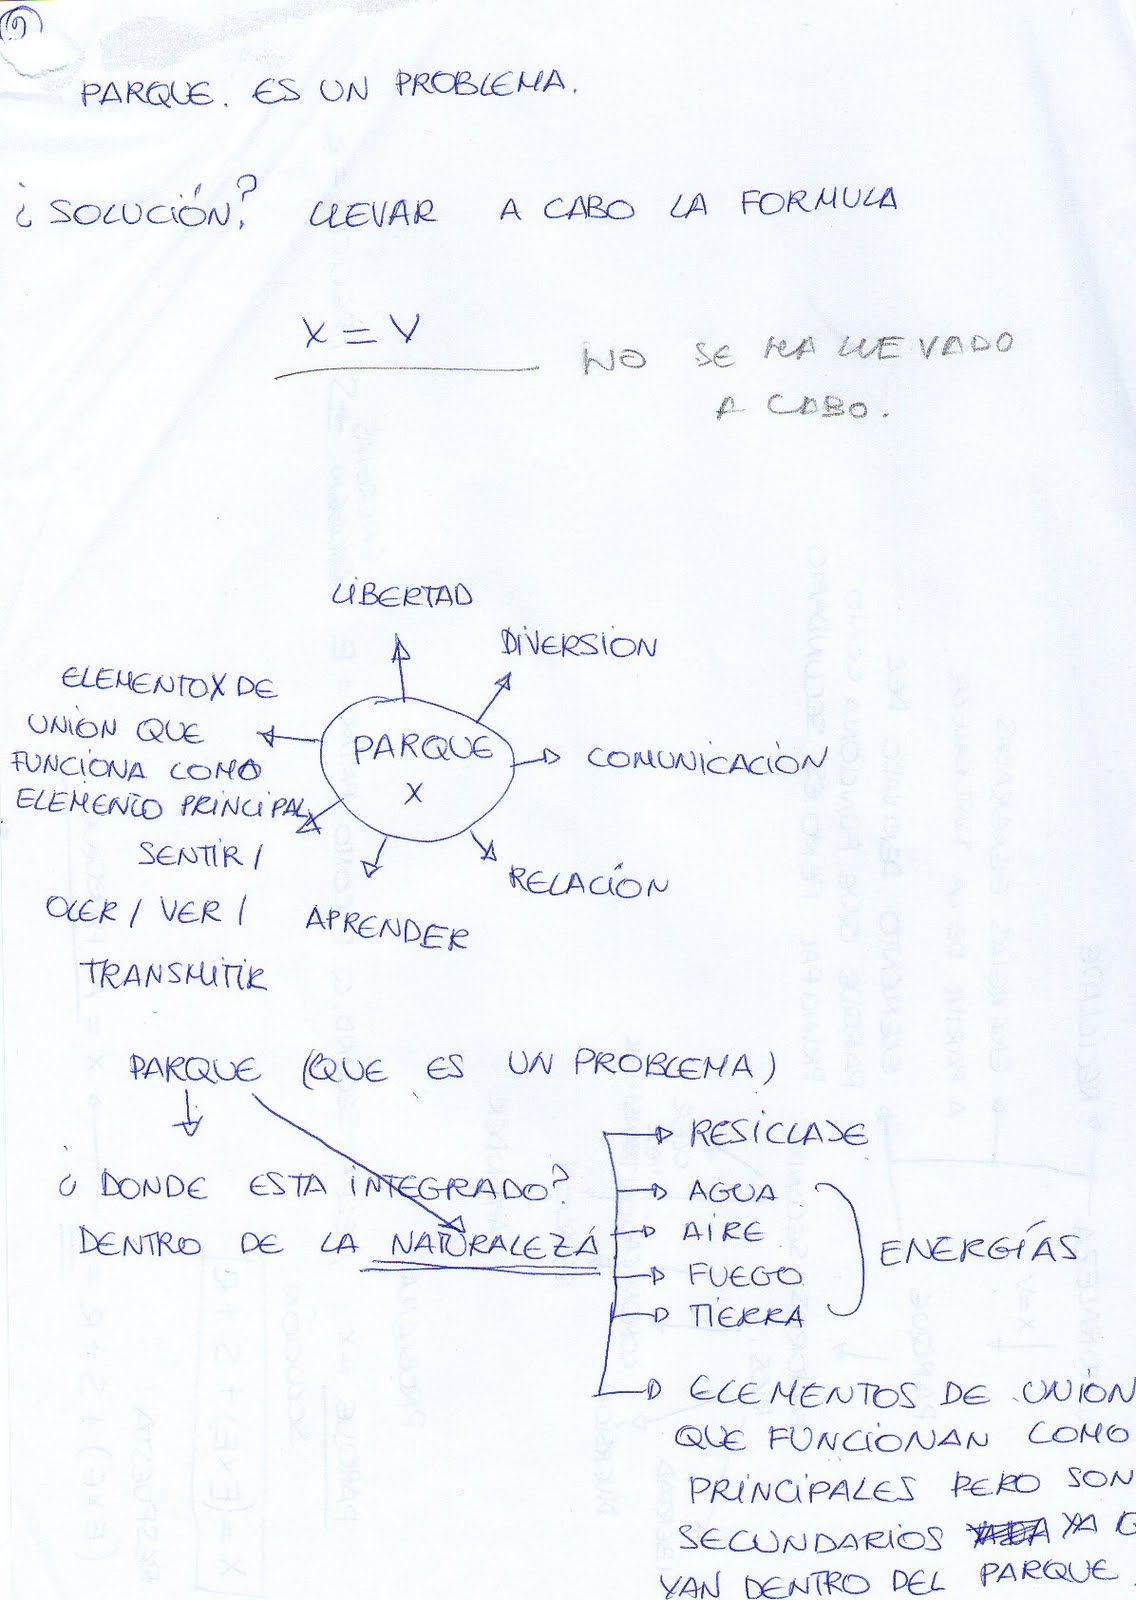 PARQUE. ES UN PROBLEMA.
¿SOLUCIÓN? LLEVAR A CABO LA FORMULA
X = Y
NO SE HA LLEVADO
A CABO.
LIBERTAD
DIVERSIÓN
ELEMENTO X DE
UNIÓN QUE
FUNCIONA COMO
ELEMENTO PRINCIPAL
PARQUE
X
COMUNICACIÓN
SENTIR /
OLER / VER /
TRANSMITIR
APRENDER
RELACIÓN
PARQUE (QUE ES UN PROBLEMA)
¿DONDE ESTA INTEGRADO?
DENTRO DE LA NATURALEZA
RESICLAJE
AGUA
AIRE
FUEGO
TIERRA
ENERGÍAS
ELEMENTOS DE UNIÓN
QUE FUNCIONAN COMO
PRINCIPALES PERO SON
SECUNDARIOS YA
VAN DENTRO DEL PARQUE.